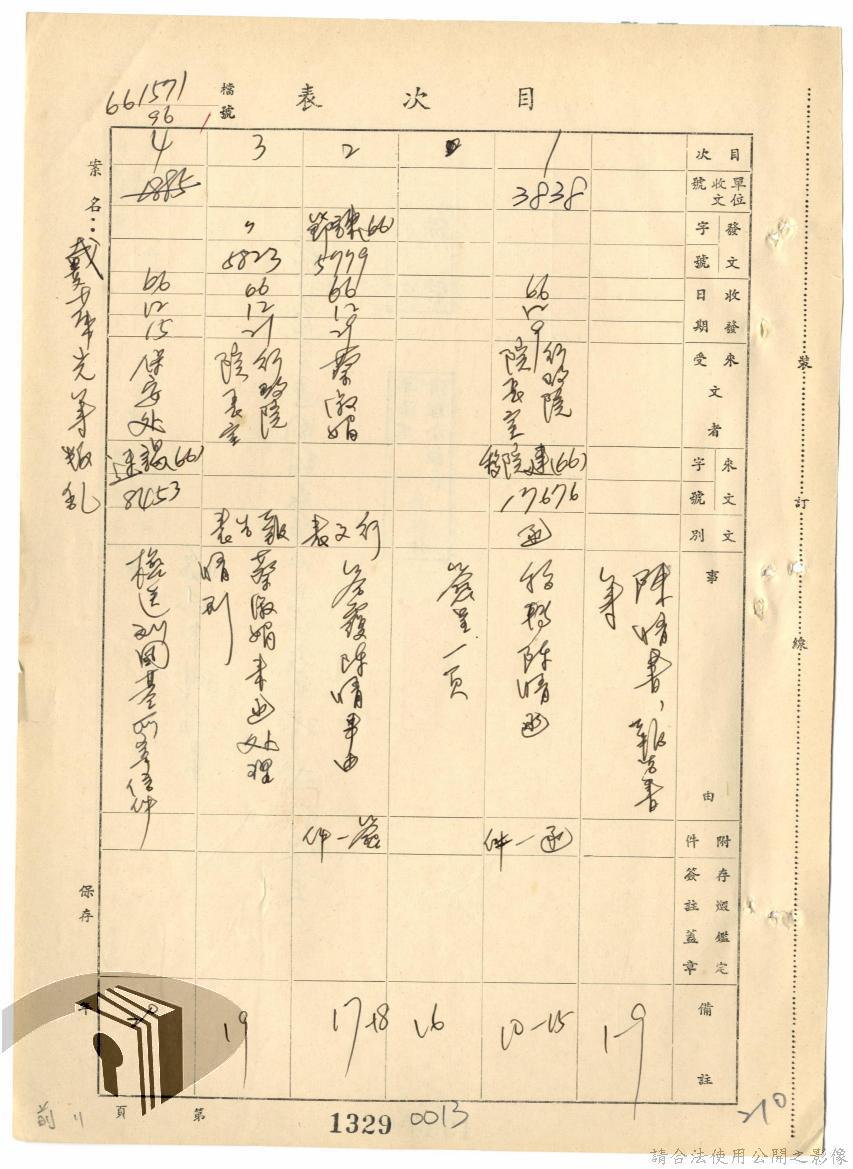 目次表
檔號
661571
96
案名：戴華光等叛亂
目次
單位收文號
發文字號
收發日期
來受文者
來文字號
文別
事由
附件
存燬鑑定簽註蓋章
備註
陳情書、報告書等
1-9
1
3838
66
12
9
行政院院長室
移院建(66)
17676
函
移轉陳情函
函一件
10-15
簽呈一頁
16
2
5779
66
12
29
蔡淑媚
行文表
答覆陳情事由
簽一件
17-18
3
〃
5823
66
12
21
行政院院長室
報告表
蔡淑媚來函处理情形
19
4
1885
66
12
15
保安处
(66)
8453
20
保存
年
裝
訂
線
第
頁
前
1329
0013
210
請合法使用公開之影像